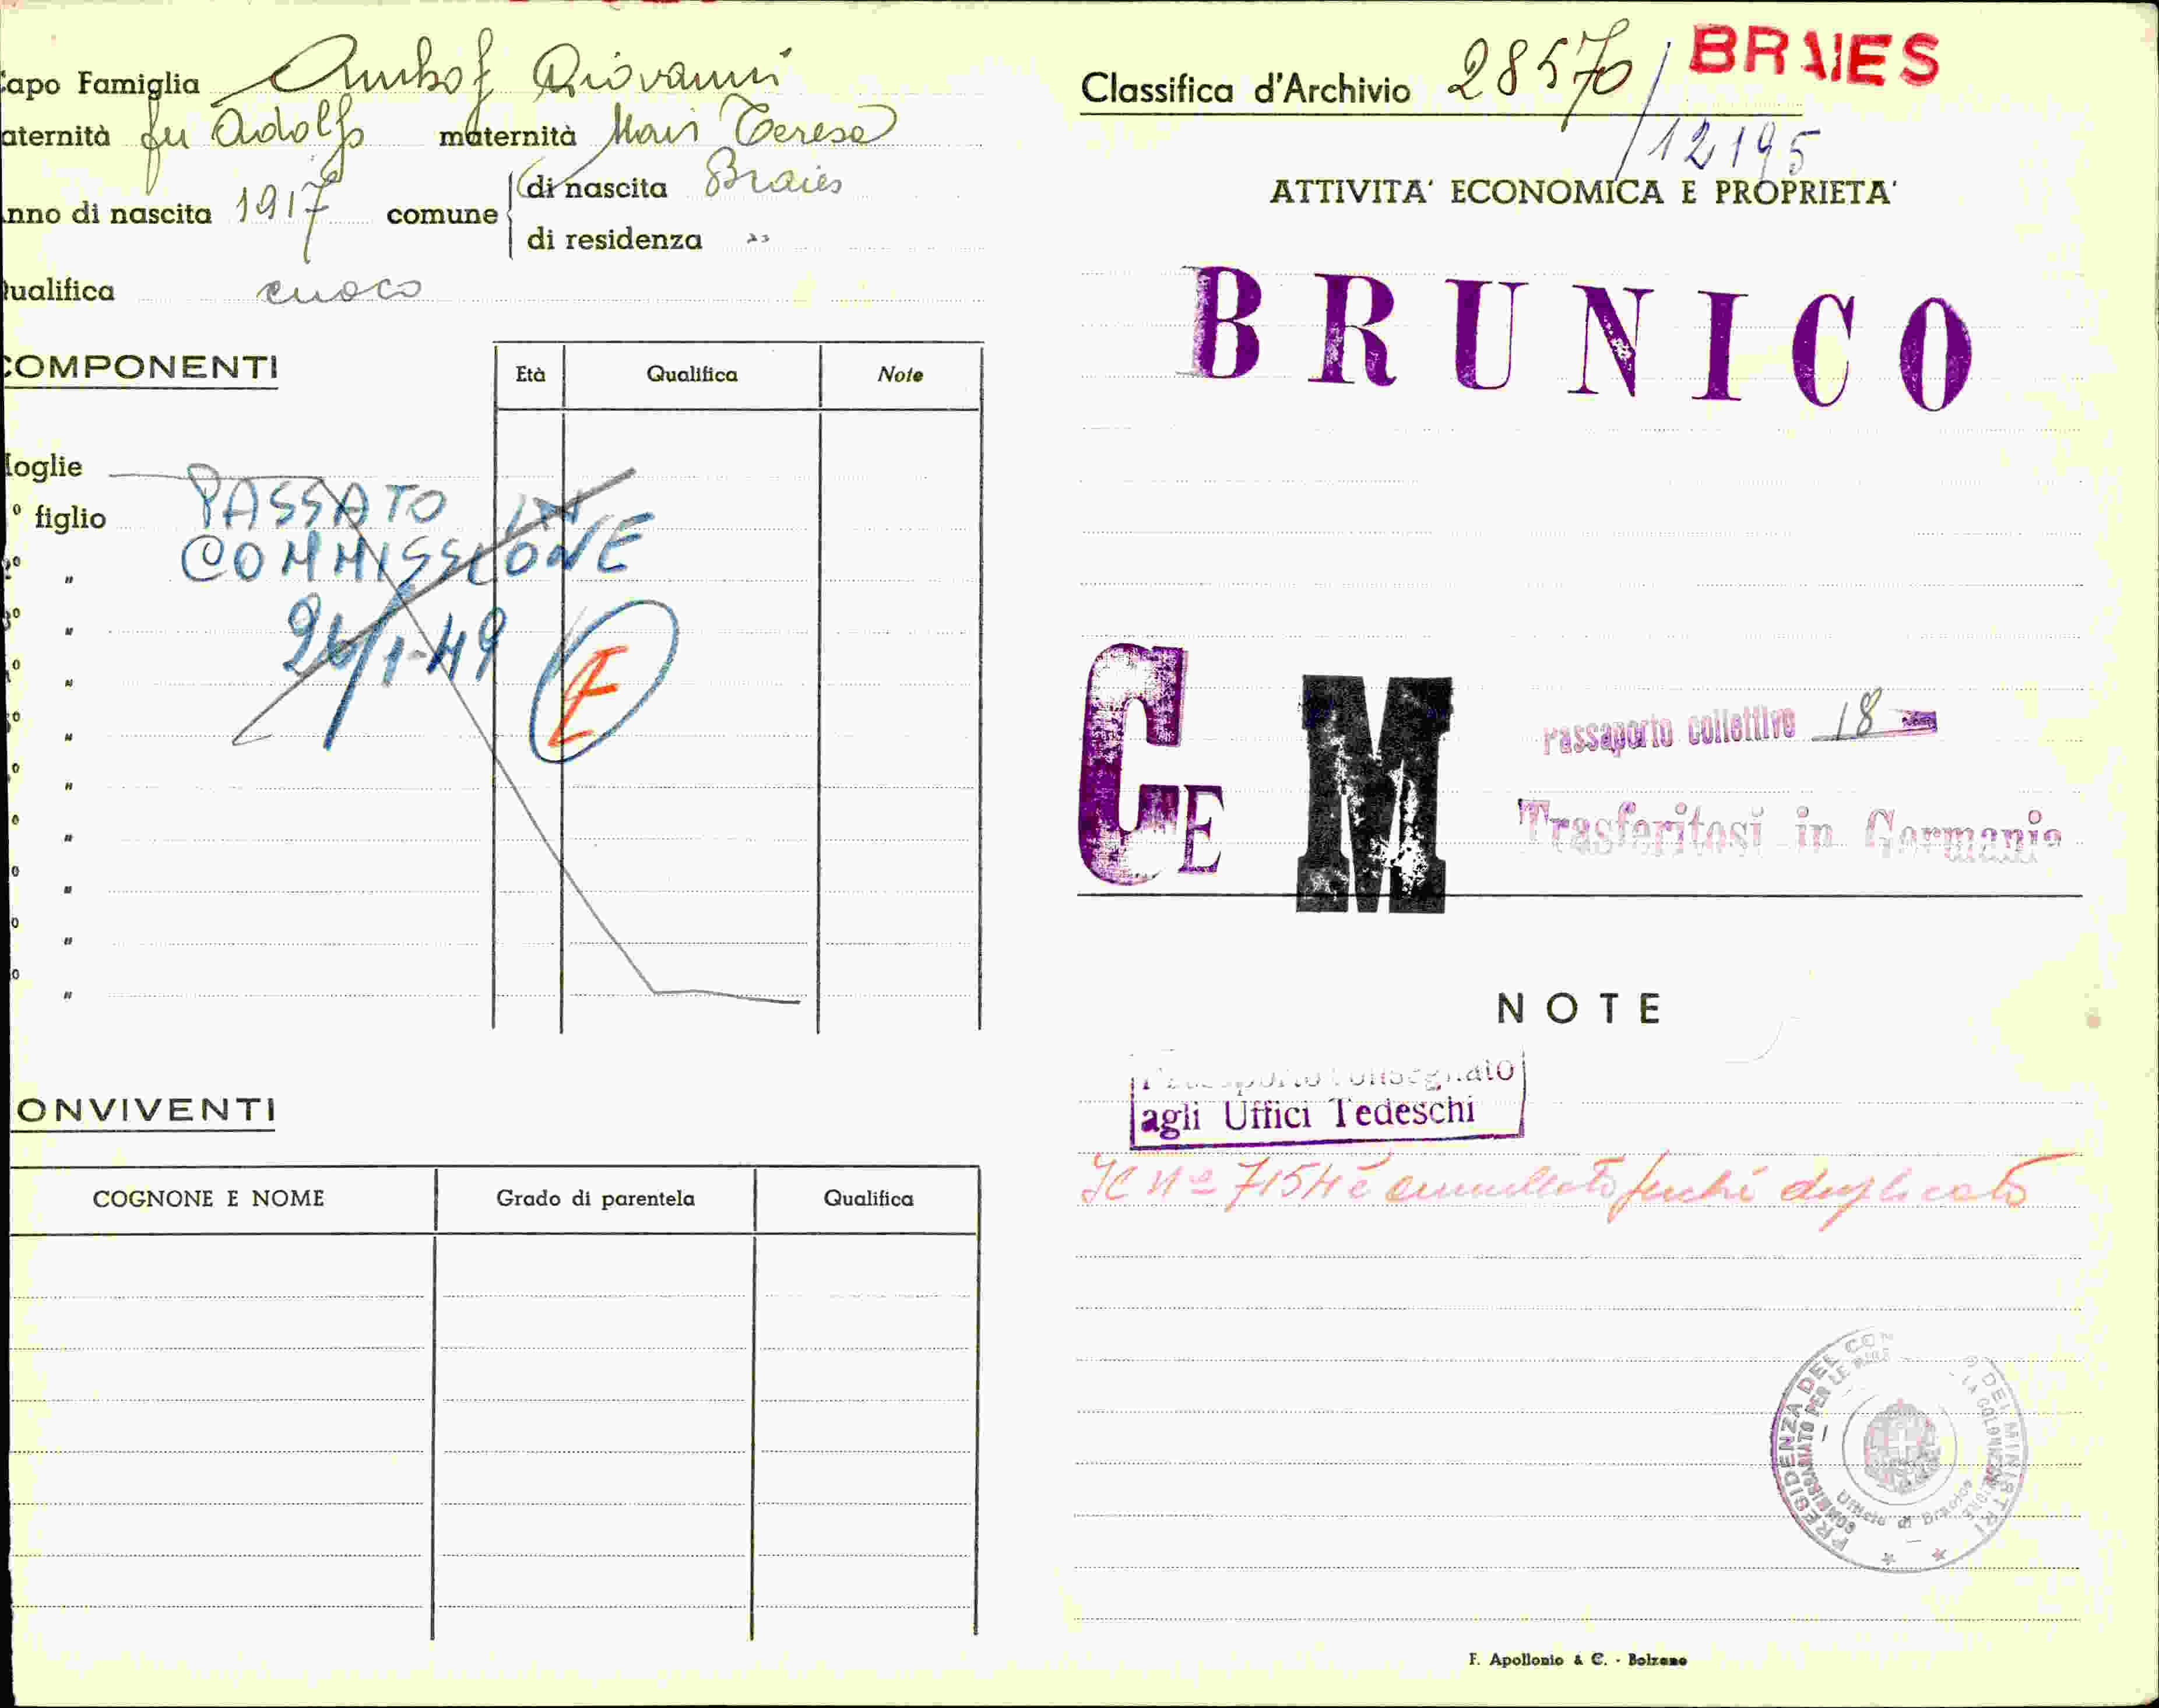 apo Famiglia Amhof Giovanni
aternità fu Adolfo maternità Mair Teresa
nno di nascita 1917 comune di nascita Braies
di residenza "
ualifica cuoco
COMPONENTI
Età Qualifica Note
oglie
° figlio
PASSATO IN
COMMISSIONE
26/1-49
E
ONVIVENTI
COGNONE E NOME Grado di parentela Qualifica
Classifica d'Archivio 28570/ BRAIES
12195
ATTIVITA' ECONOMICA E PROPRIETA'
BRUNICO
C E M
Passaporto collettivo 18
Trasferitosi in Germania
NOTE
Passaporto consegnato
agli Uffici Tedeschi
Il n° 7154 è annullato perché duplicato
PRESIDENZA DEL CON DEI MINISTRI
Ufficio di Brunico
F. Apollonio & C. - Bolzano